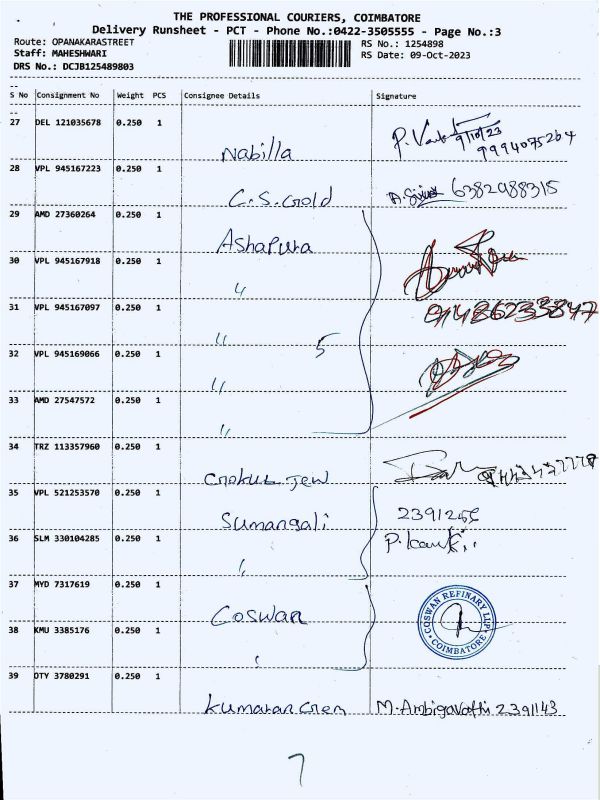 THE PROFESSIONAL COURIERS, COIMBATORE
Delivery Runsheet - PCT - Phone No.:0422-3505555 - Page No.:3
Route: OPANAKARASTREET
Staff: MAHESHWARI
DRS No.: DCJB125489803
RS No.: 1254898
RS Date: 09-Oct-2023
S No Consignment No Weight PCS Consignee Details Signature
27 DEL 121035678 0.250 1
Nabilla
9/10/23
9994075264
28 VPL 945167223 0.250 1
C.S.Gold
6382988315
29 AMD 27360264 0.250 1
Ashapura
30 VPL 945167918 0.250 1
"
31 VPL 945167097 0.250 1
" 5
32 VPL 945169066 0.250 1
"
33 AMD 27547572 0.250 1
"
34 TRZ 113357960 0.250 1
Gokul Jew
35 VPL 521253570 0.250 1
Sumangali
36 SLM 330104285 0.250 1
"
37 MYD 7317619 0.250 1
Coswan
COSWAN REFINARY LLP
COIMBATORE
38 KMU 3385176 0.250 1
"
39 OTY 3780291 0.250 1
Kumaran Gem M. Ambigavathi 2391143
7